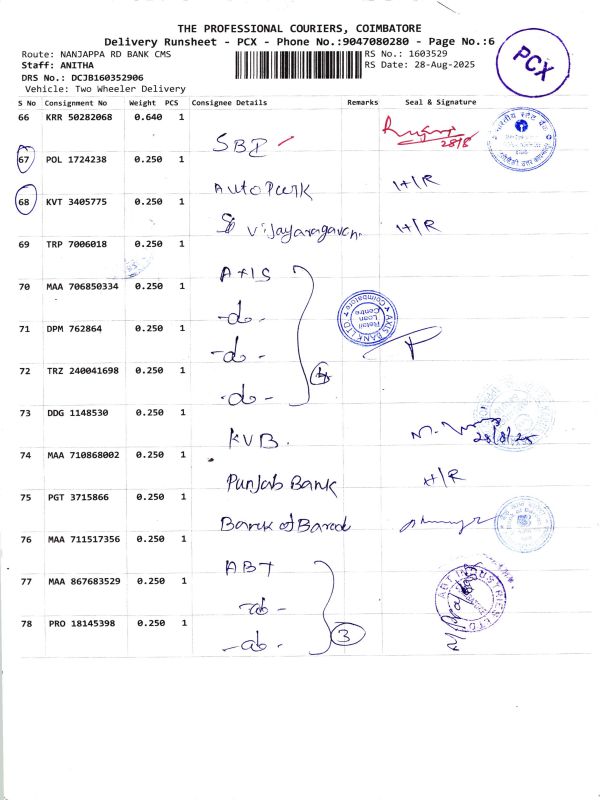 THE PROFESSIONAL COURIERS, COIMBATORE
Delivery Runsheet - PCX - Phone No.:9047080280 - Page No.:6
Route: NANJAPPA RD BANK CMS
RS No.: 1603529
Staff: ANITHA
RS Date: 28-Aug-2025
DRS No.: DCJB160352906
Vehicle: Two Wheeler Delivery
PCX
S No Consignment No Weight PCS Consignee Details Remarks Seal & Signature
66 KRR 50282068 0.640 1
SBI 28/8
67 POL 1724238 0.250 1
AutoPunk H/R
68 KVT 3405775 0.250 1
Vijayaragavan H/R
69 TRP 7006018 0.250 1
AXIS
70 MAA 706850334 0.250 1
-do-
AXIS BANK LTD Retail Loan Centre Coimbatore
71 DPM 762864 0.250 1
-do-
72 TRZ 240041698 0.250 1
-do- 4
73 DDG 1148530 0.250 1
KVB. 28/8/25
74 MAA 710868002 0.250 1
Punjab Bank H/R
75 PGT 3715866 0.250 1
Bank of Barod
76 MAA 711517356 0.250 1
ABT
77 MAA 867683529 0.250 1
-do-
ABT INDUSTRIES LTD
78 PRO 18145398 0.250 1
-do- 3